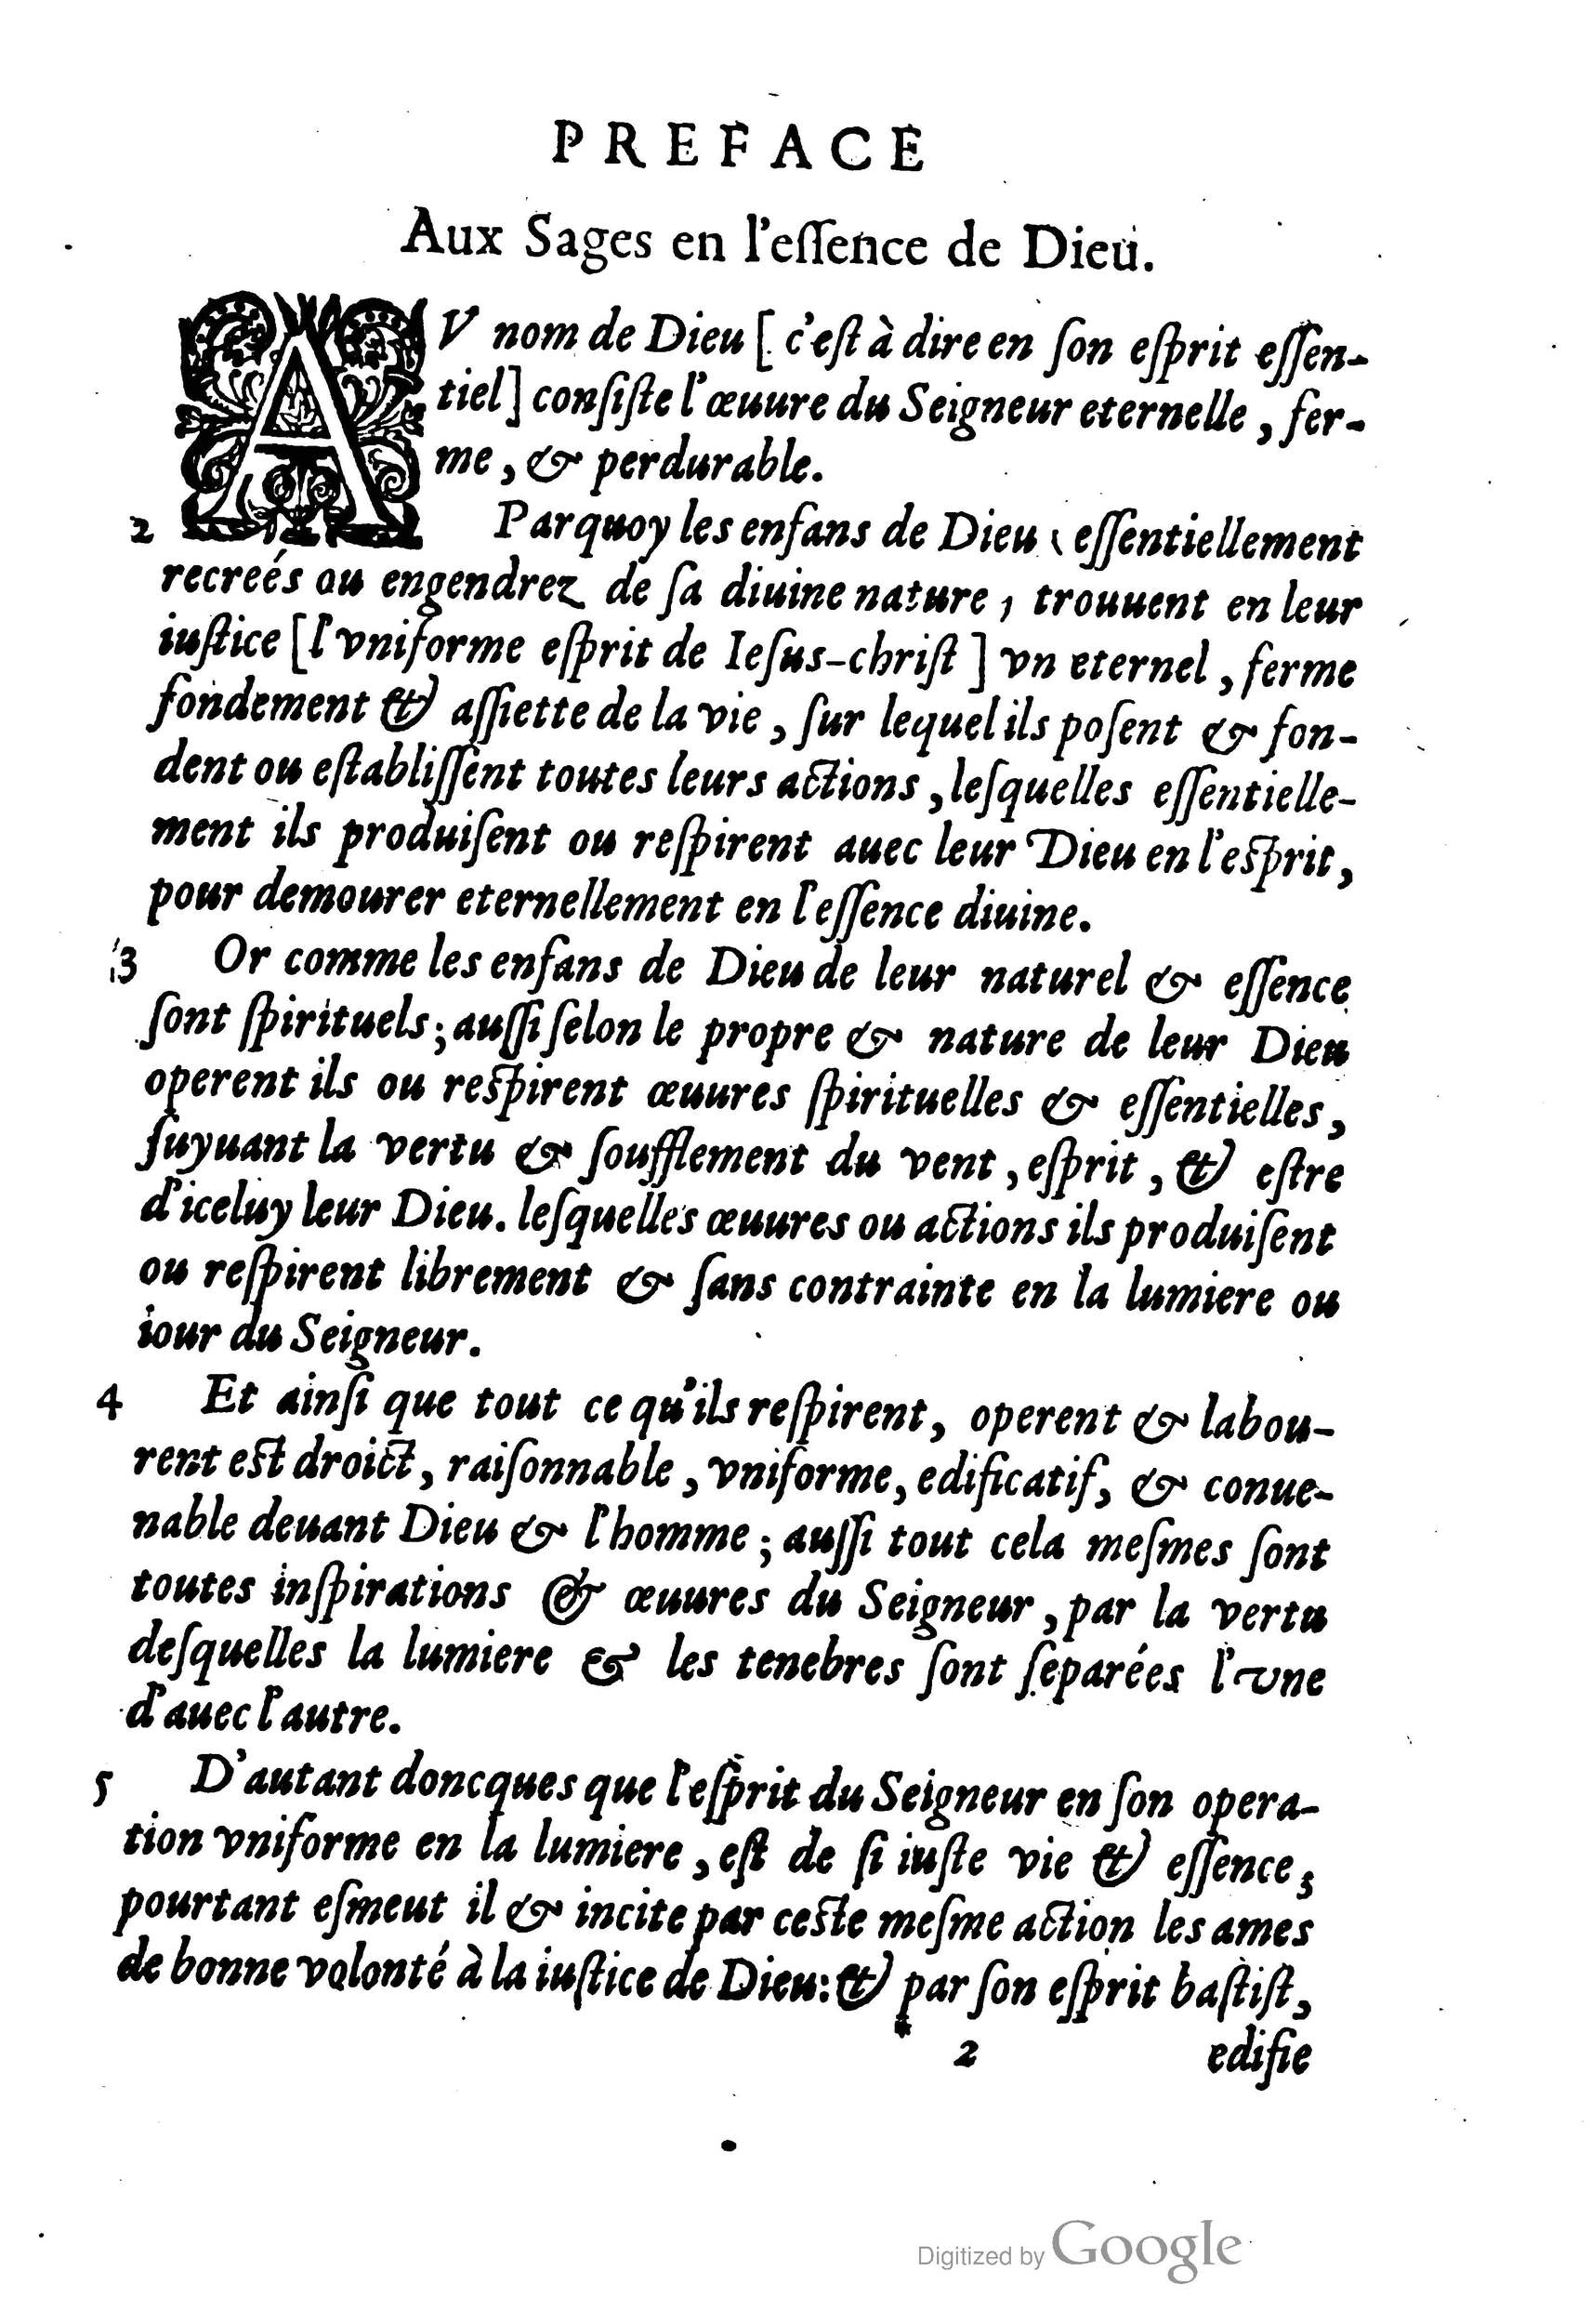 PREFACE
Aux Sages en l'eſſence de Dieu.
AV nom de Dieu [ c'eſt à dire en ſon eſprit eſſen-
tiel ] conſiſte l'œuure du Seigneur eternelle, fer-
me, & perdurable.
2 Parquoy les enfans de Dieu, eſſentiellement
recreés ou engendrez de ſa diuine nature, trouuent en leur
iuſtice [ l'vniforme eſprit de Ieſus-chriſt ] vn eternel, ferme
fondement & aſſiette de la vie, ſur lequel ils poſent & fon-
dent ou eſtabliſſent toutes leurs actions, leſquelles eſſentielle-
ment ils produiſent ou reſpirent auec leur Dieu en l'eſprit,
pour demourer eternellement en l'eſſence diuine.
3 Or comme les enfans de Dieu de leur naturel & eſſence
ſont ſpirituels; auſſi ſelon le propre & nature de leur Dieu
operent ils ou reſpirent œuures ſpirituelles & eſſentielles,
ſuyuant la vertu & ſoufflement du vent, eſprit, & eſtre
d'iceluy leur Dieu. leſquelles œuures ou actions ils produiſent
ou reſpirent librement & ſans contrainte en la lumiere ou
iour du Seigneur.
4 Et ainſi que tout ce qu'ils reſpirent, operent & labou-
rent eſt droict, raiſonnable, vniforme, edificatif, & conue-
nable deuant Dieu & l'homme; auſſi tout cela meſmes ſont
toutes inſpirations & œuures du Seigneur, par la vertu
deſquelles la lumiere & les tenebres ſont ſeparées l'vne
d'auec l'autre.
5 D'autant doncques que l'eſprit du Seigneur en ſon opera-
tion vniforme en la lumiere, eſt de ſi iuſte vie & eſſence,
pourtant eſmeut il & incite par ceſte meſme action les ames
de bonne volonté à la iuſtice de Dieu: & par ſon eſprit baſtiſt,
* 2 edifie
Digitized by Google